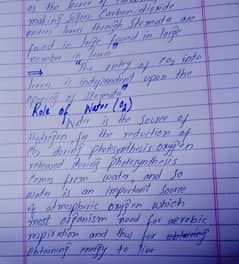 as the source of
making sugars Carbon-dioxide
enters leaves through Stomata are
found in large found in large
number in
⇒ "The entry of CO2 into
leaves is independent upon the
opening of stomata"
Role of Water (O2)
Water is the source of
Hydrogen for the reduction of
CO2 during photosynthesis. oxygen
released during photosynthesis
comes from water, and so
water is an important source
of atmospheric oxygen which
most organism need for aerobic
respiration and thus for obtaining
obtaining energy to live.